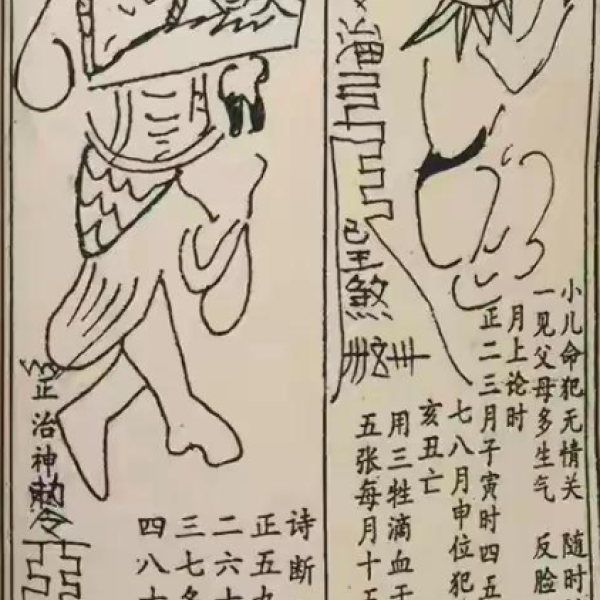 小儿命犯无情关 随时
一见父母多生气 反脸
月上论时
正二三月子寅时四五
七八月申位犯
亥丑亡
用三牲滴血于
五张每月十五
煞
诗断
正五九
二六十
三七冬
四八十
正治神勅令